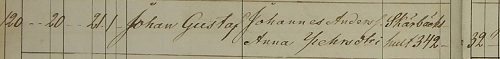 120 -- 20 -- 21/- Johan Gustaf Johannes Anderss. Skärbäcks
Anna Pehrsdtr hult 342 - - 32